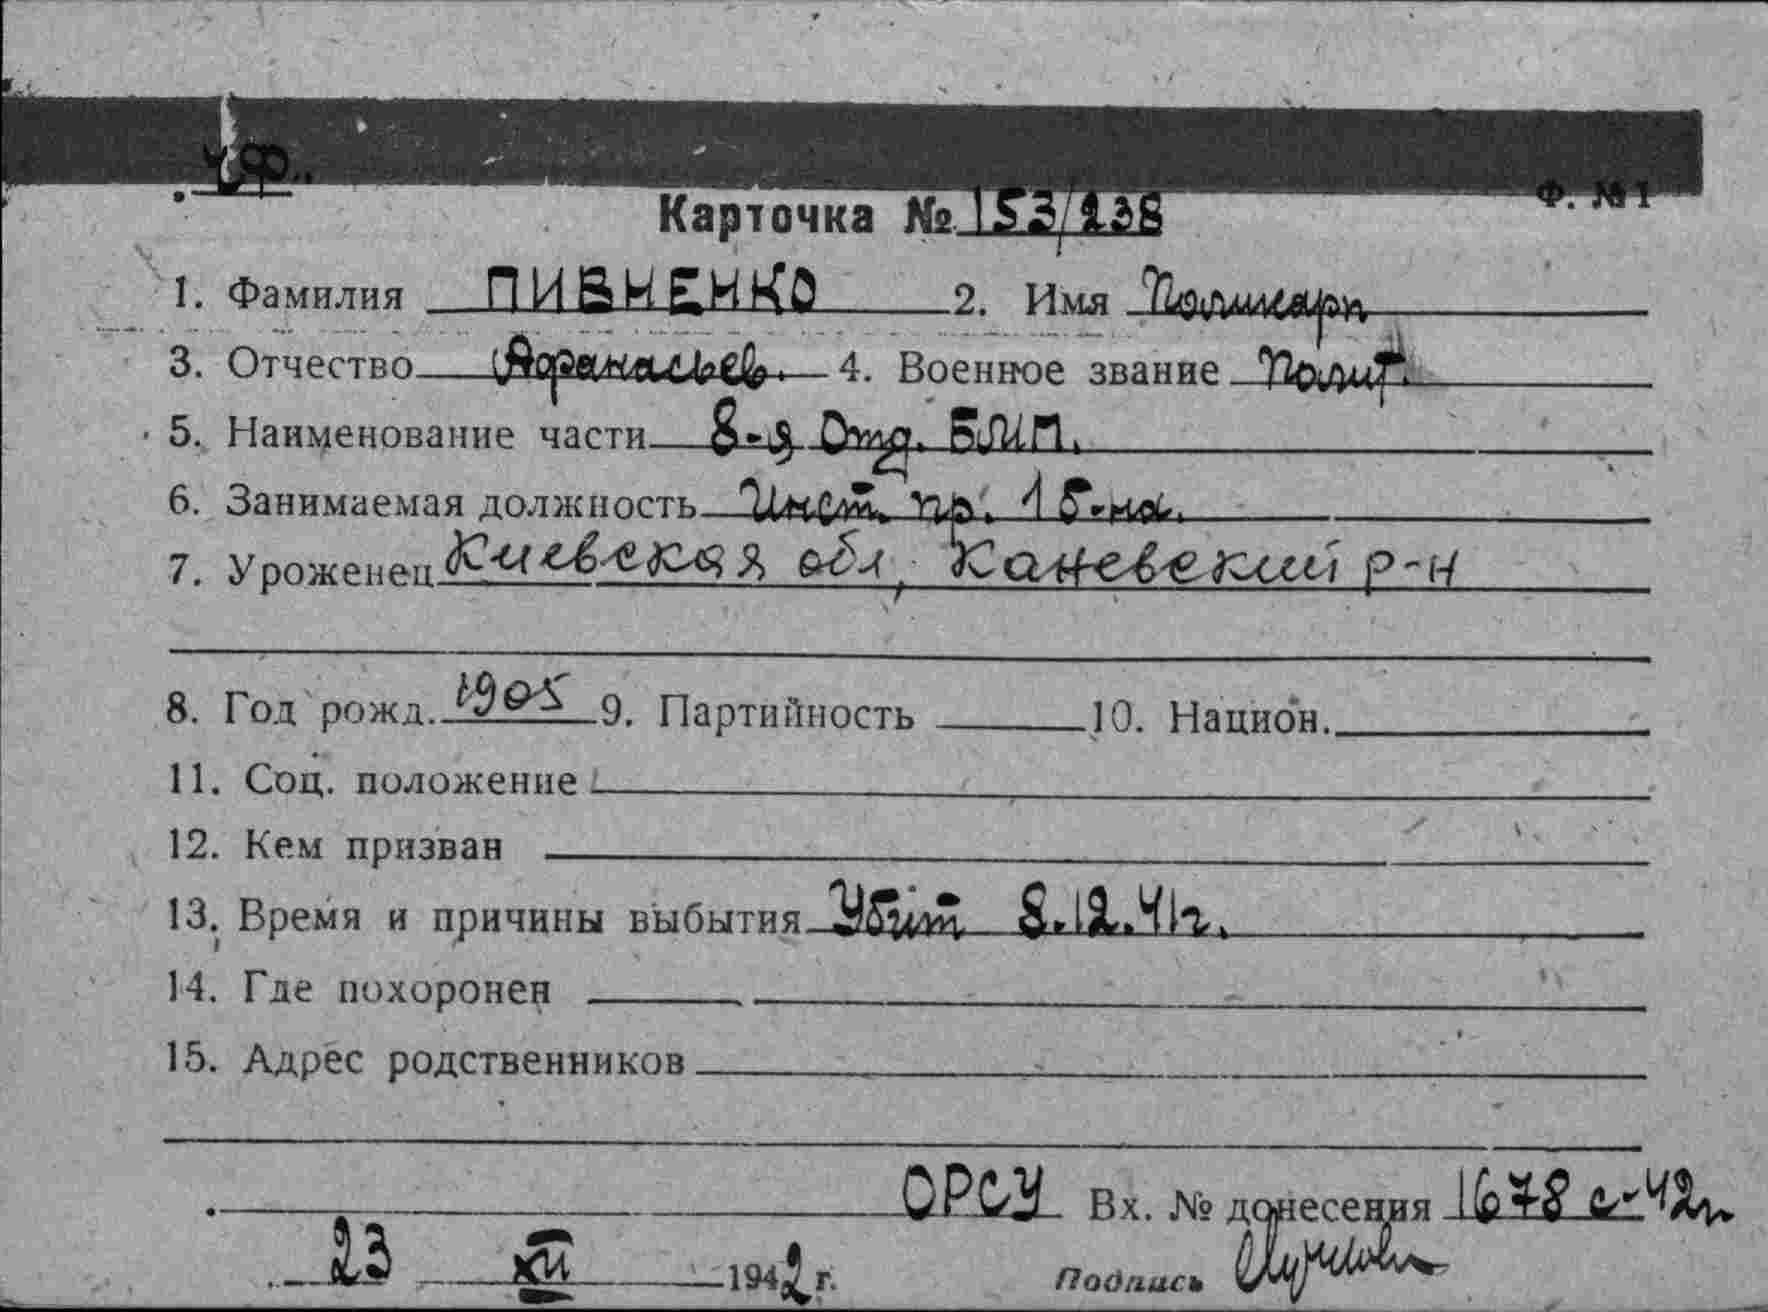 Ф. №1
Карточка № 153/238
1. Фамилия ПИВНЕНКО 2. Имя Поликарп
3. Отчество Афанасьев. 4. Военное звание Полит.
5. Наименование части 8-я Отд. БМП.
6. Занимаемая должность Инст. пр. 1 б-на.
7. Уроженец Киевская обл, Каневский р-н
8. Год рожд. 1905 9. Партийность 10. Национ.
11. Соц. положение
12. Кем призван
13. Время и причины выбытия Убит 8.12.41г.
14. Где похоронен
15. Адрес родственников
ОРСУ Вх. № донесения 1678 с-42г
23 XII 1942 г. Подпись